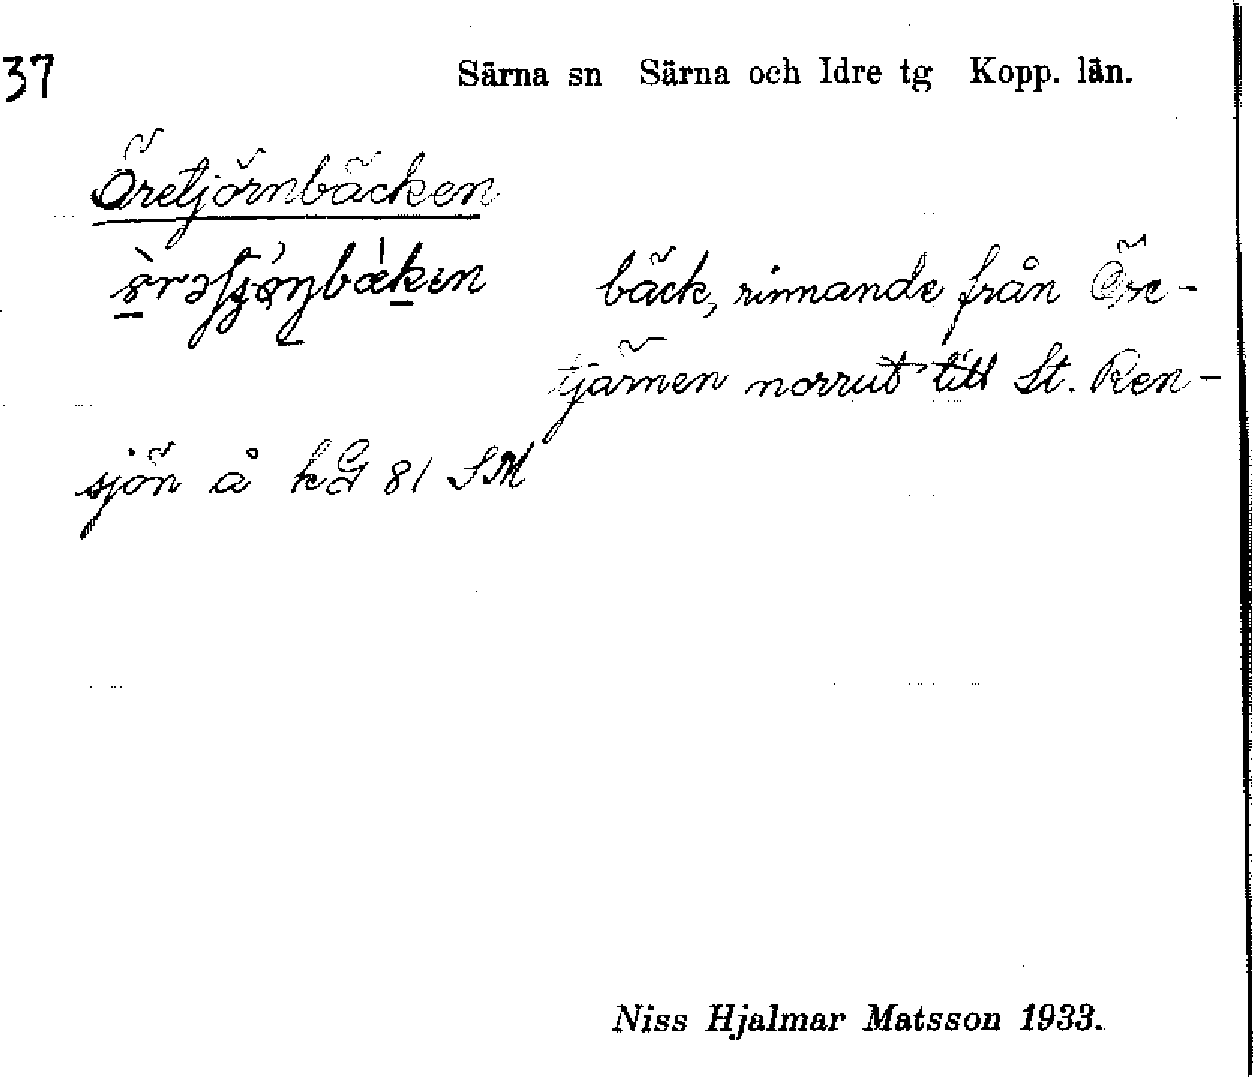 37
Särna sn Särna och Idre tg Kopp. län.
Öretjörnbäcken
bäck, rinnande från Öre-
tjärnen norrut till St. Ren-
sjön å kG 81 SM
Niss Hjalmar Matsson 1933.